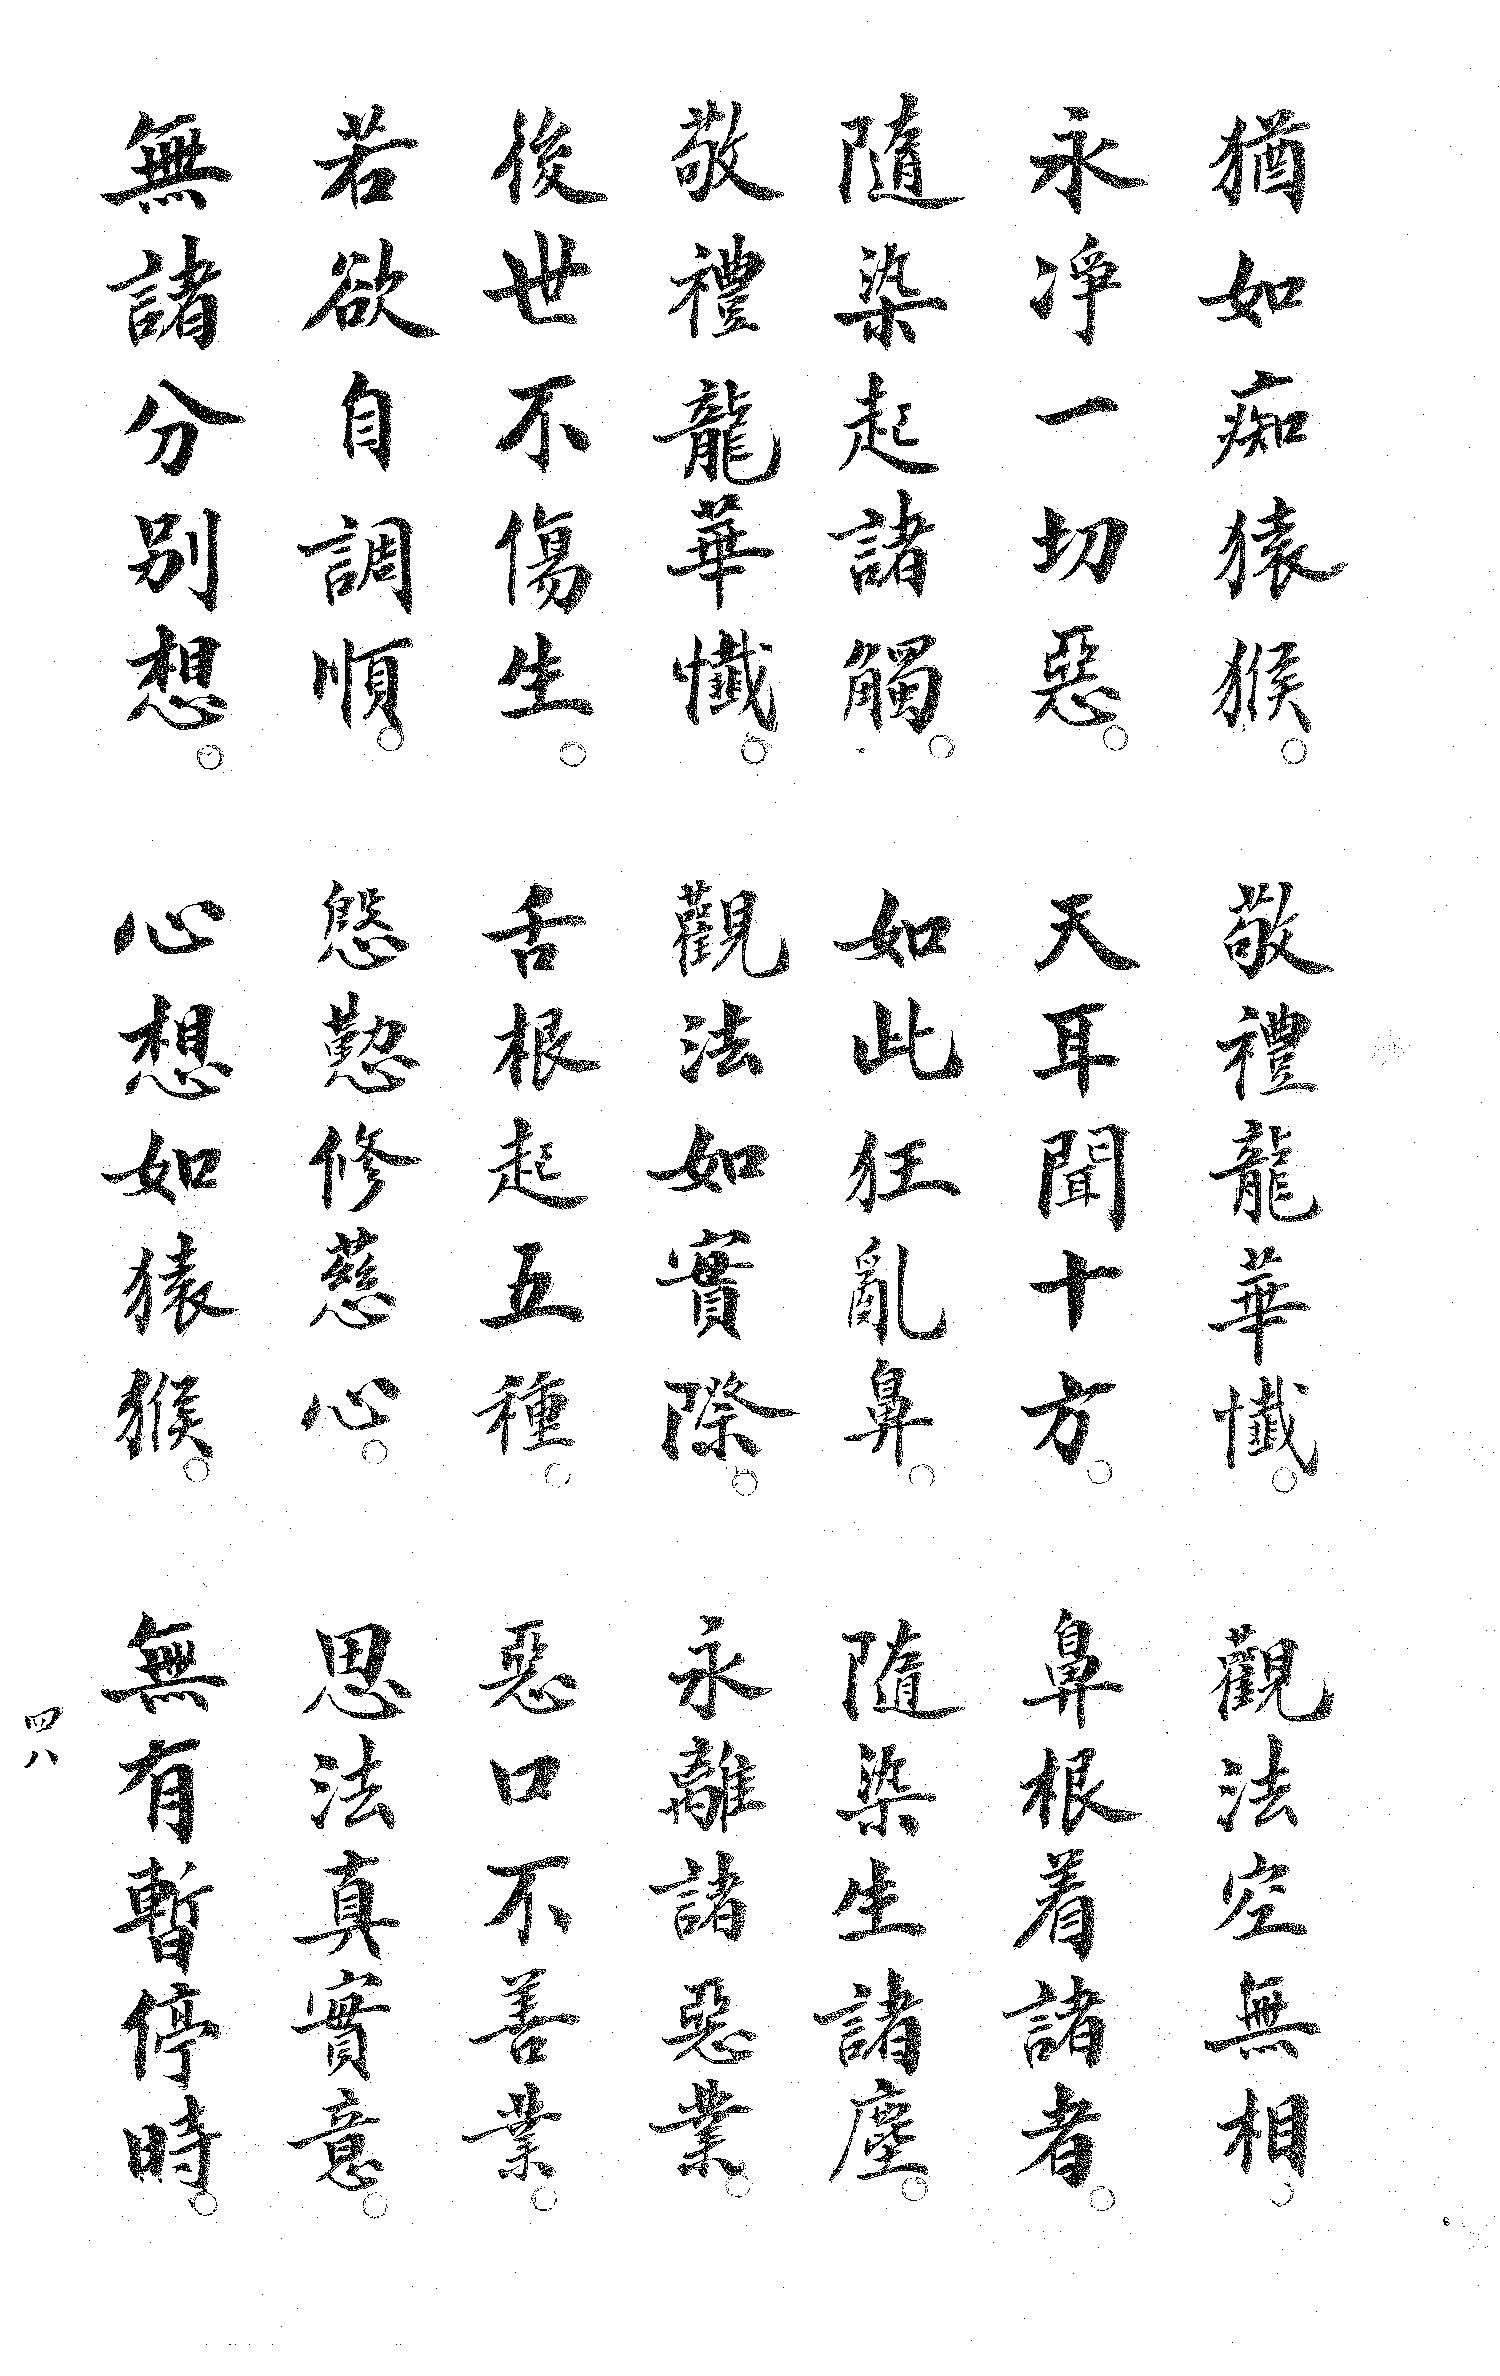 猶如痴猿猴。敬禮龍華懺。觀法空無相。
永淨一切惡。天耳聞十方。鼻根着諸者。
隨染起諸觸。如此狂亂鼻。隨染生諸塵。
敬禮龍華懺。觀法如實際。永離諸惡業。
後世不傷生。舌根起五種。惡口不善業。
若欲自調順。慇懃修慈心。思法真實意。
無諸分別想。心想如猿猴。無有暫停時。
四八